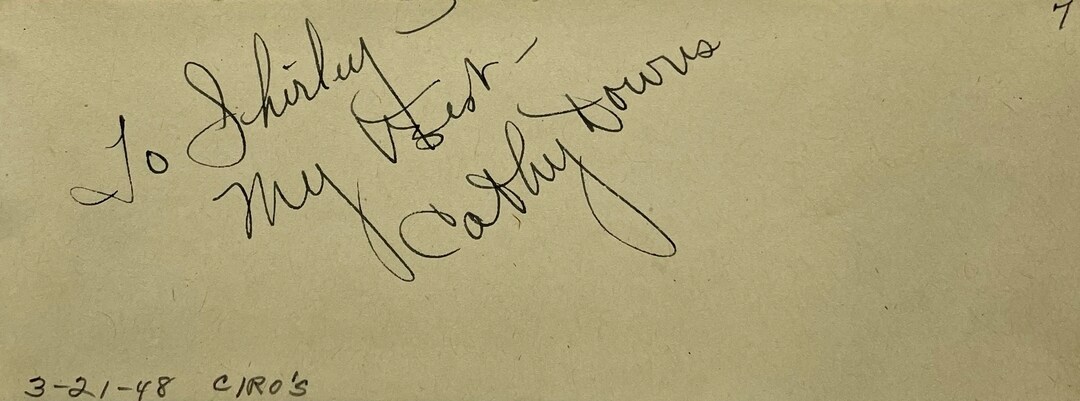 7
To Shirley -
My Best -
Cathy Downs
3-21-48 CIRO'S